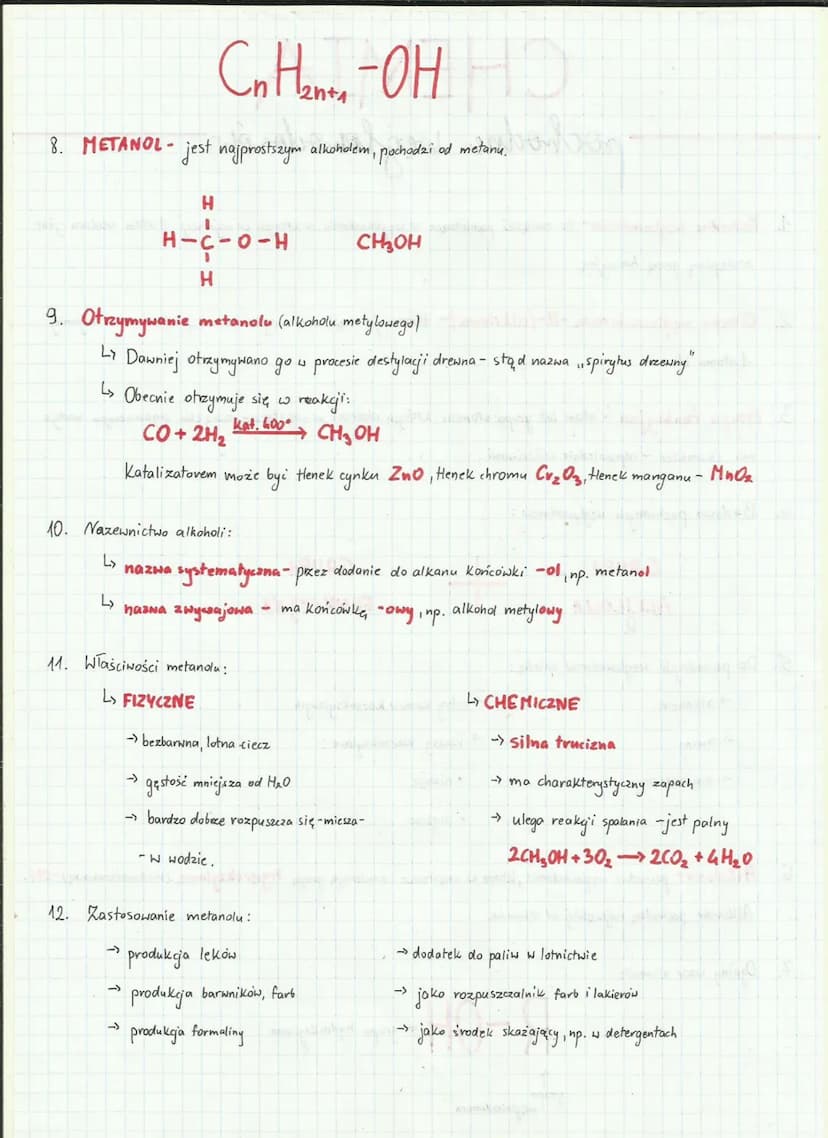 CnH2n+1-OH
8. METANOL - jest najprostszym alkoholem, pochodzi od metanu.
H
H-C-O-H CH3OH
H
9. Otrzymywanie metanolu (alkoholu metylowego)
↳ Dawniej otrzymywano go w procesie destylacji drewna - stąd nazwa „spirytus drzewny"
↳ Obecnie otrzymuje się w reakcji:
CO + 2H2 kat. 400° → CH3OH
Katalizatorem może być tlenek cynku ZnO, tlenek chromu Cr2O3, tlenek manganu - MnO2
10. Nazewnictwo alkoholi:
↳ nazwa systematyczna - przez dodanie do alkanu końcówki -ol, np. metanol
↳ nazwa zwyczajowa - ma końcówkę -owy, np. alkohol metylowy
11. Właściwości metanolu:
↳ FIZYCZNE
→ bezbarwna, lotna ciecz
→ gęstość mniejsza od H2O
→ bardzo dobrze rozpuszcza się -miesza-
- w wodzie.
↳ CHEMICZNE
→ silna trucizna
→ ma charakterystyczny zapach
→ ulega reakcji spalania - jest palny
2CH3OH + 3O2 → 2CO2 + 4H2O
12. Zastosowanie metanolu:
→ produkcja leków
→ produkcja barwników, farb
→ produkcja formaliny
→ dodatek do paliw w lotnictwie
→ jako rozpuszczalnik farb i lakierów
→ jako środek skażający, np. w detergentach